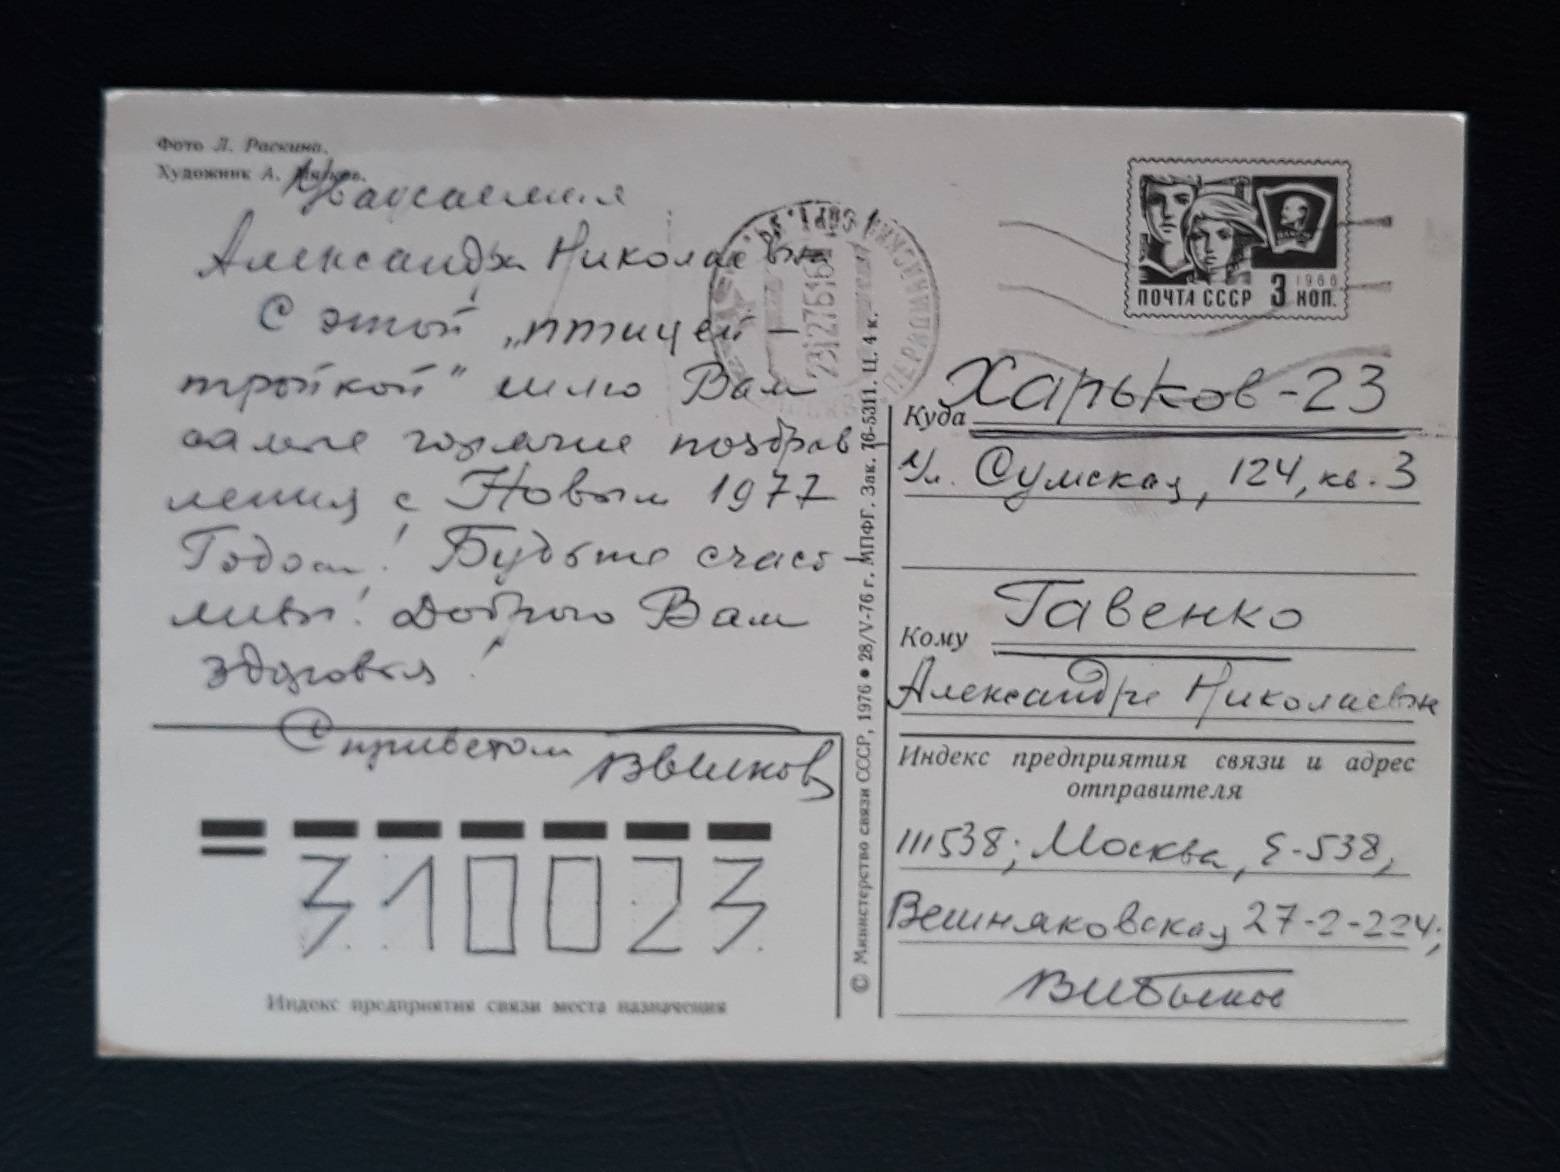 Фото Л. Раскина.
Художник А.
Уважаемая
Александра Николаевна
С этой „птицей-
тройкой" шлю Вам
самые горячие поздрав-
ления с Новым 1977
Годом! Будьте счаст-
ливы! Доброго Вам
здоровья!
С приветом
310023
Индекс предприятия связи места назначения
© Министерство связи СССР, 1976 ● 28/V-76 г. МПФГ. Зак. 76-5311. Ц. 4 к.
23127616
ПОЧТА СССР 3 КОП.
1966
Куда Харьков-23
ул. Сумская, 124, кв. 3
Кому Гавенко
Александре Николаевне
Индекс предприятия связи и адрес
отправителя
111538; Москва, Е-538,
Вешняковская 27-2-224;
В И Быков